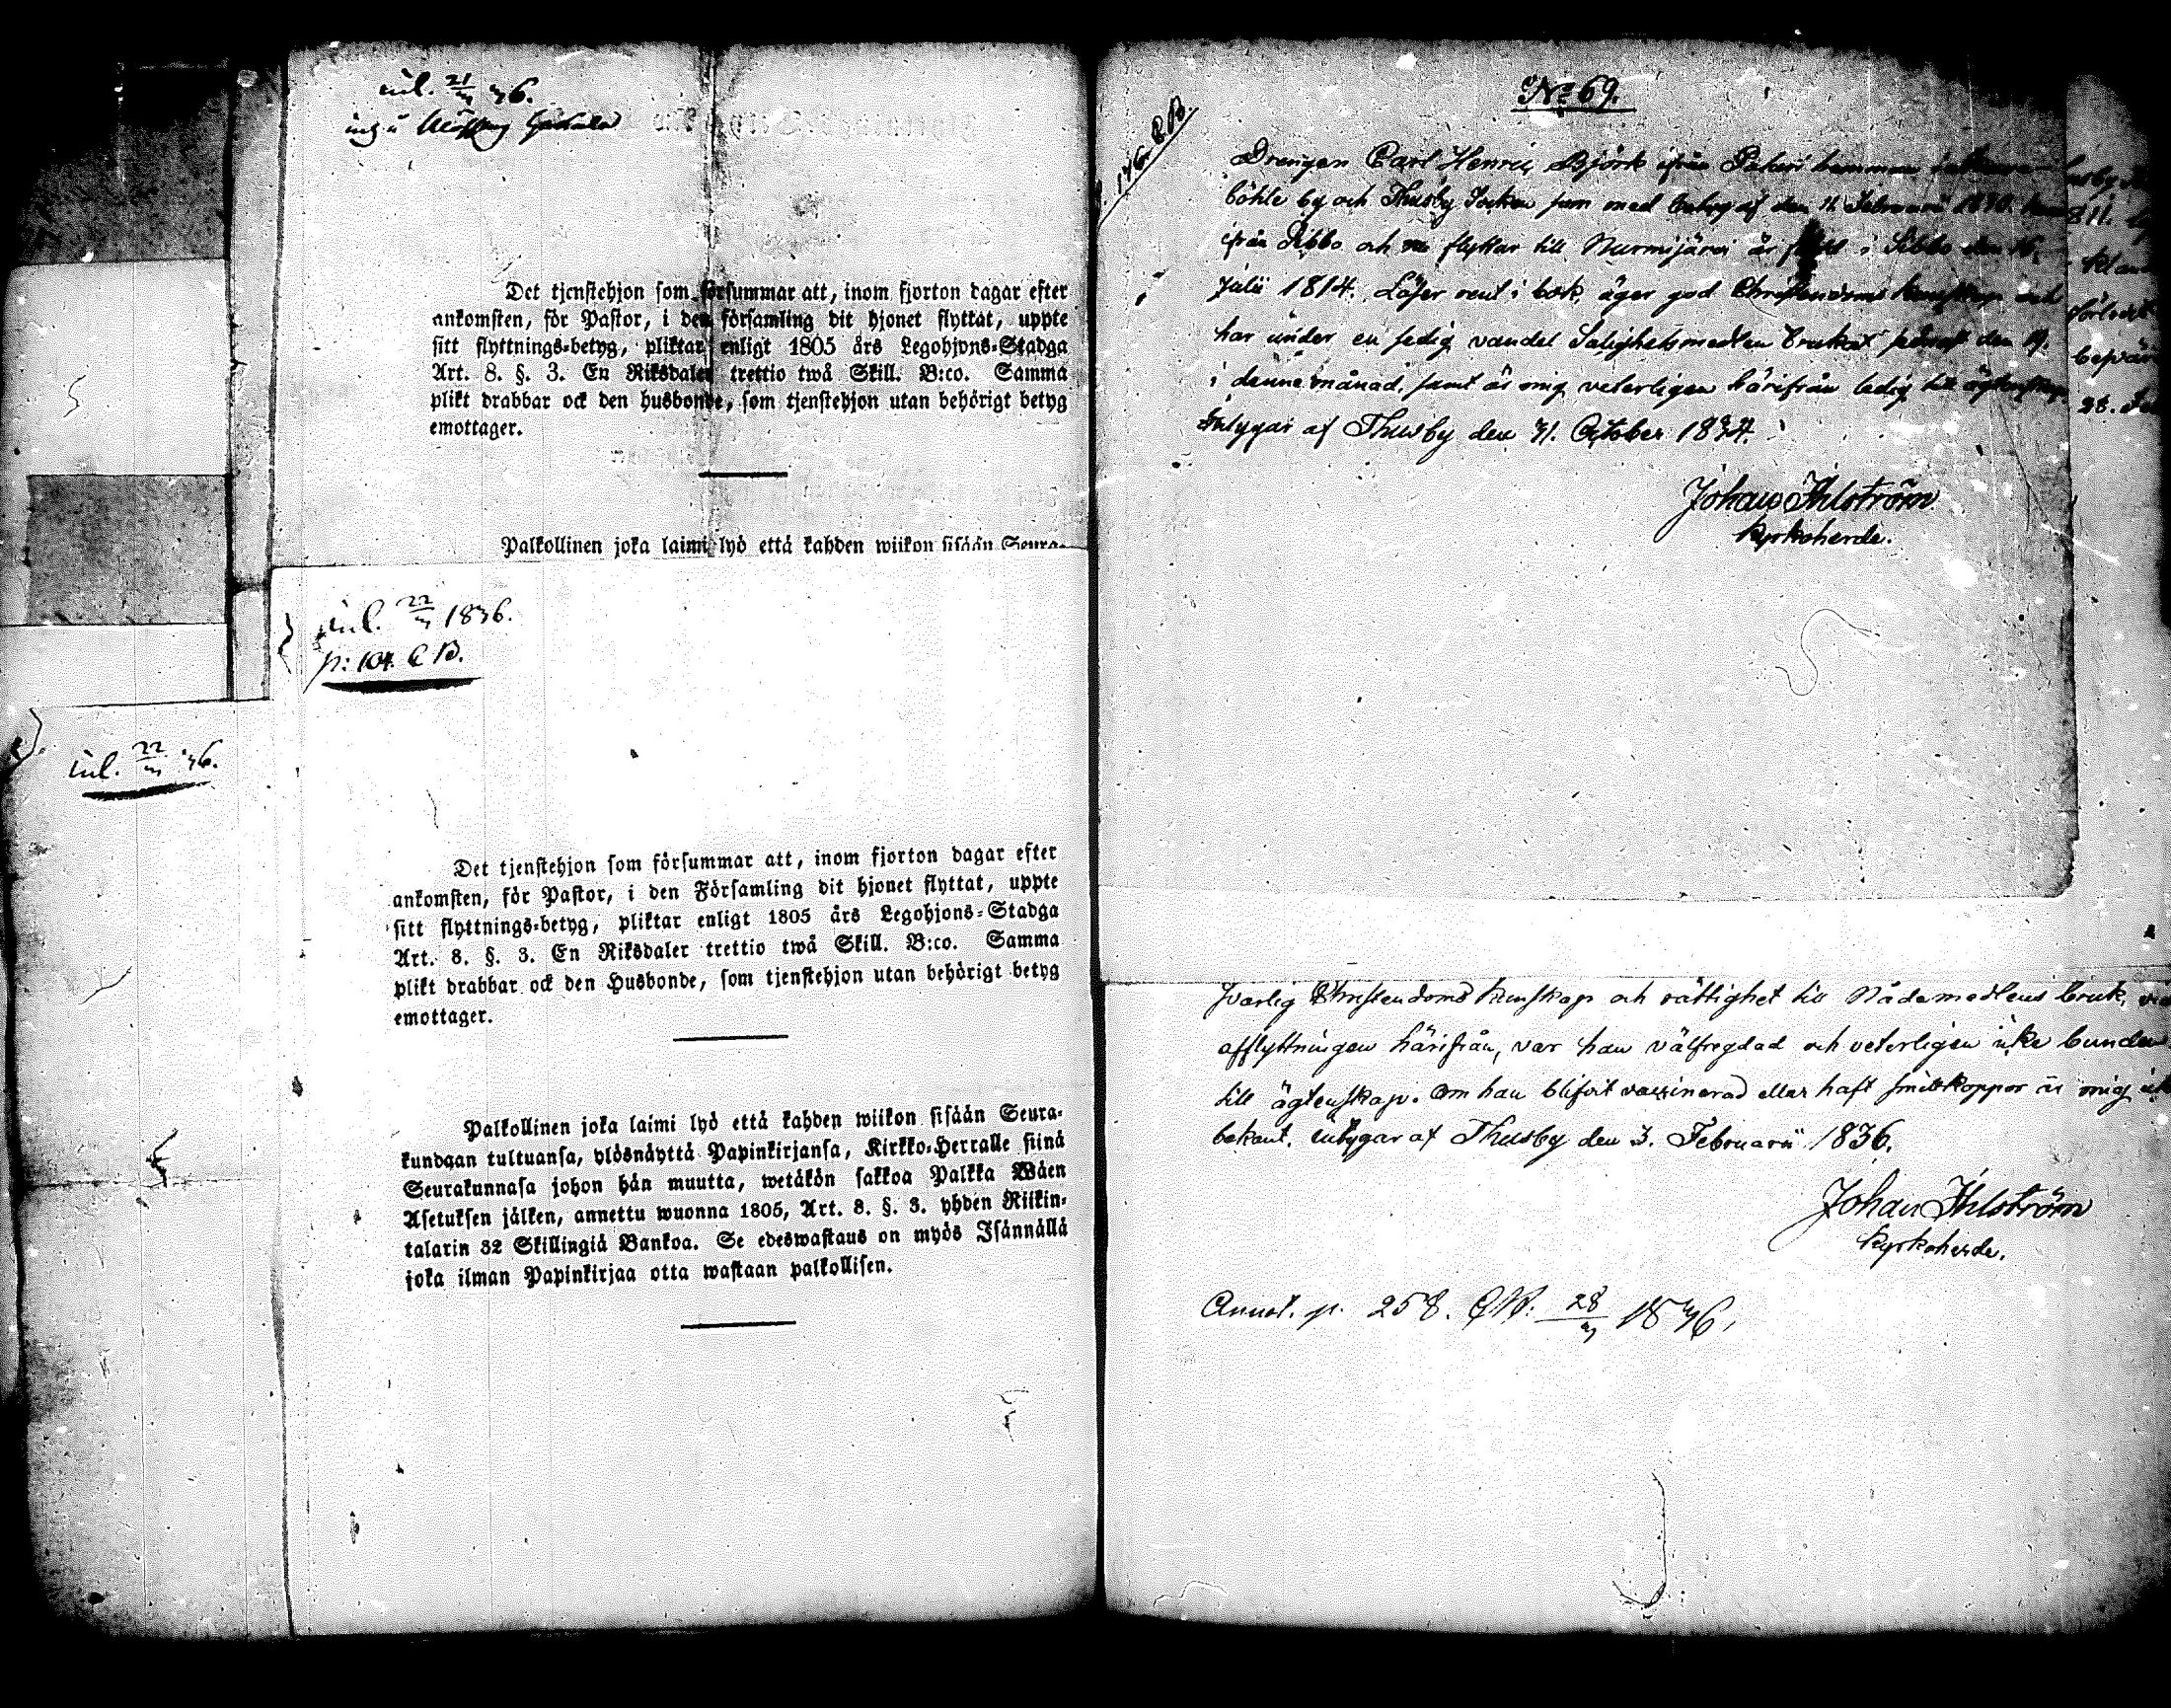 inl. 21/3 36.
Det tjenstehjon som försummar att, inom fjorton dagar efter
ankomsten, för Pastor, i den församling dit hjonet flyttat, uppte
sitt flyttnings-betyg, pliktar enligt 1805 års Legohjons-Stadga
Art. 8. §. 3. En Riksdaler trettio twå Skill. B:co. Samma
plikt drabbar ock den husbonde, som tjenstehjon utan behörigt betyg
emottager.
Palkollinen joka laimi lyö että kahden wiikon sisään Seura-
inl. 22/3 1836.
p: 104. C B.
inl. 22/3 36.
Det tjenstehjon som försummar att, inom fjorton dagar efter
ankomsten, för Pastor, i den Församling dit hjonet flyttat, uppte
sitt flyttnings-betyg, pliktar enligt 1805 års Legohjons-Stadga
Art. 8. §. 3. En Riksdaler trettio twå Skill. B:co. Samma
plikt drabbar ock den Husbonde, som tjenstehjon utan behörigt betyg
emottager.
Palkollinen joka laimi lyö että kahden wiikon sisään Seura-
kundaan tultuansa, ylösnäyttä Papinkirjansa, Kirkko-Herralle siinä
Seurakunnasa johon hän muutta, wetäkön sakkoa Palkka Wäen
Asetuksen jälken, annettu wuonna 1805, Art. 8. §. 3. yhden Riikin-
talarin 32 Skillingiä Bankoa. Se edeswastaus on myös Isännällä
joka ilman Papinkirjaa otta wastaan palkollisen.
No 69.
146. C B.
Drengen Carl Henric Björk ifrån hemman
böhle by och Thusby Socken som med betyg af den 11. Februarii 1830.
ifrån Sibbo och nu flyttar till Nurmijärvi är född i Sibbo den 16.
Julii 1814. Läser rent i bok, äger god Christendoms kunskap och
har under en sedig vandel Salighetsmedlen brukat sednast den 19.
i denne månad, samt är mig veterligen härifrån ledig till ägtenskap.
Intygar af Thusby den 31. October 1834.
Johan Ihlström
Kyrkoherde.
Christendoms kunskap och rättighet till Nådemedlens bruk, vid
afflyttningen härifrån, var han välfregdad och veterligen icke bunden
till ägtenskap. Om han blifvit vaccinerad eller haft smittkoppor är mig
bekant. intygar af Thusby den 3. Februarii 1836.
Johan Ihlström
Kyrkoherde.
Annot. p. 258. C B. 28/3 1836.